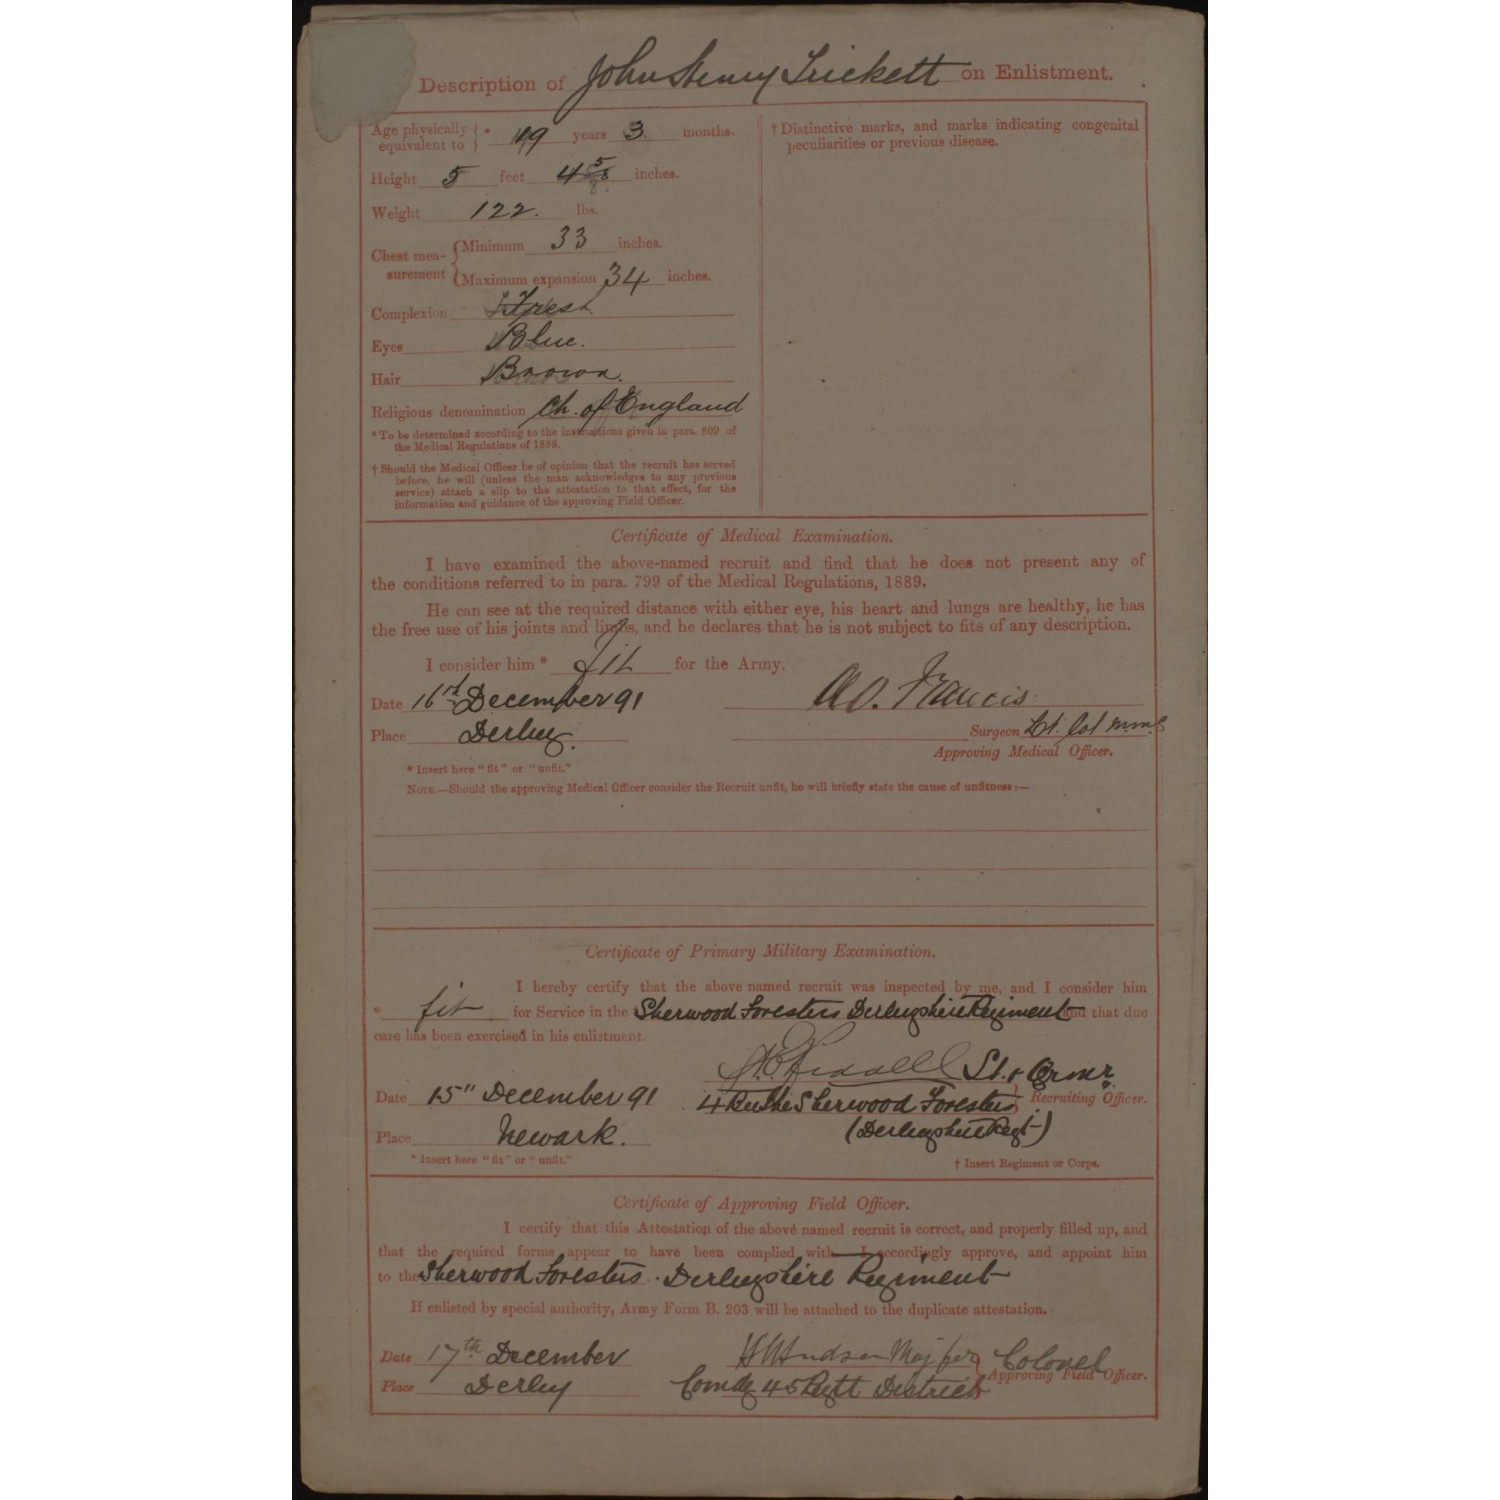 Description of John Henry Trickett on Enlistment.
Age physically equivalent to * 19 years 3 months.
Height 5 feet 4 5/8 inches.
Weight 122. lbs.
Chest measurement Minimum 33 inches.
Maximum expansion 34 inches.
Complexion Fresh
Eyes Blue.
Hair Brown.
Religious denomination Ch. of England
* To be determined according to the instructions given in para. 809 of
the Medical Regulations of 1889.
† Should the Medical Officer be of opinion that the recruit has served
before, he will (unless the man acknowledges to any previous
service) attach a slip to the attestation to that effect, for the
information and guidance of the approving Field Officer.
† Distinctive marks, and marks indicating congenital
peculiarities or previous disease.
Certificate of Medical Examination.
I have examined the above-named recruit and find that he does not present any of
the conditions referred to in para. 799 of the Medical Regulations, 1889.
He can see at the required distance with either eye, his heart and lungs are healthy, he has
the free use of his joints and limbs, and he declares that he is not subject to fits of any description.
I consider him * Fit for the Army.
Date 16th December 91
Francis
Place Derby.
Surgeon Lt. Col
Approving Medical Officer.
* Insert here "fit" or "unfit."
NOTE.—Should the approving Medical Officer consider the Recruit unfit, he will briefly state the cause of unfitness:—
Certificate of Primary Military Examination.
I hereby certify that the above named recruit was inspected by me, and I consider him
* fit for Service in the Sherwood Foresters Derbyshire Regiment and that due
care has been exercised in his enlistment.
Date 15" December 91
4 Sherwood Foresters Recruiting Officer.
(Derbyshire Regt)
Place Newark.
* Insert here "fit" or "unfit."
† Insert Regiment or Corps.
Certificate of Approving Field Officer.
I certify that this Attestation of the above named recruit is correct, and properly filled up, and
that the required forms appear to have been complied with. I accordingly approve, and appoint him
to the Sherwood Foresters. Derbyshire Regiment
If enlisted by special authority, Army Form B. 203 will be attached to the duplicate attestation.
Date 17th December
Hudson Maj for Colonel
Approving Field Officer.
Place Derby
Comdg 45 Regtl District